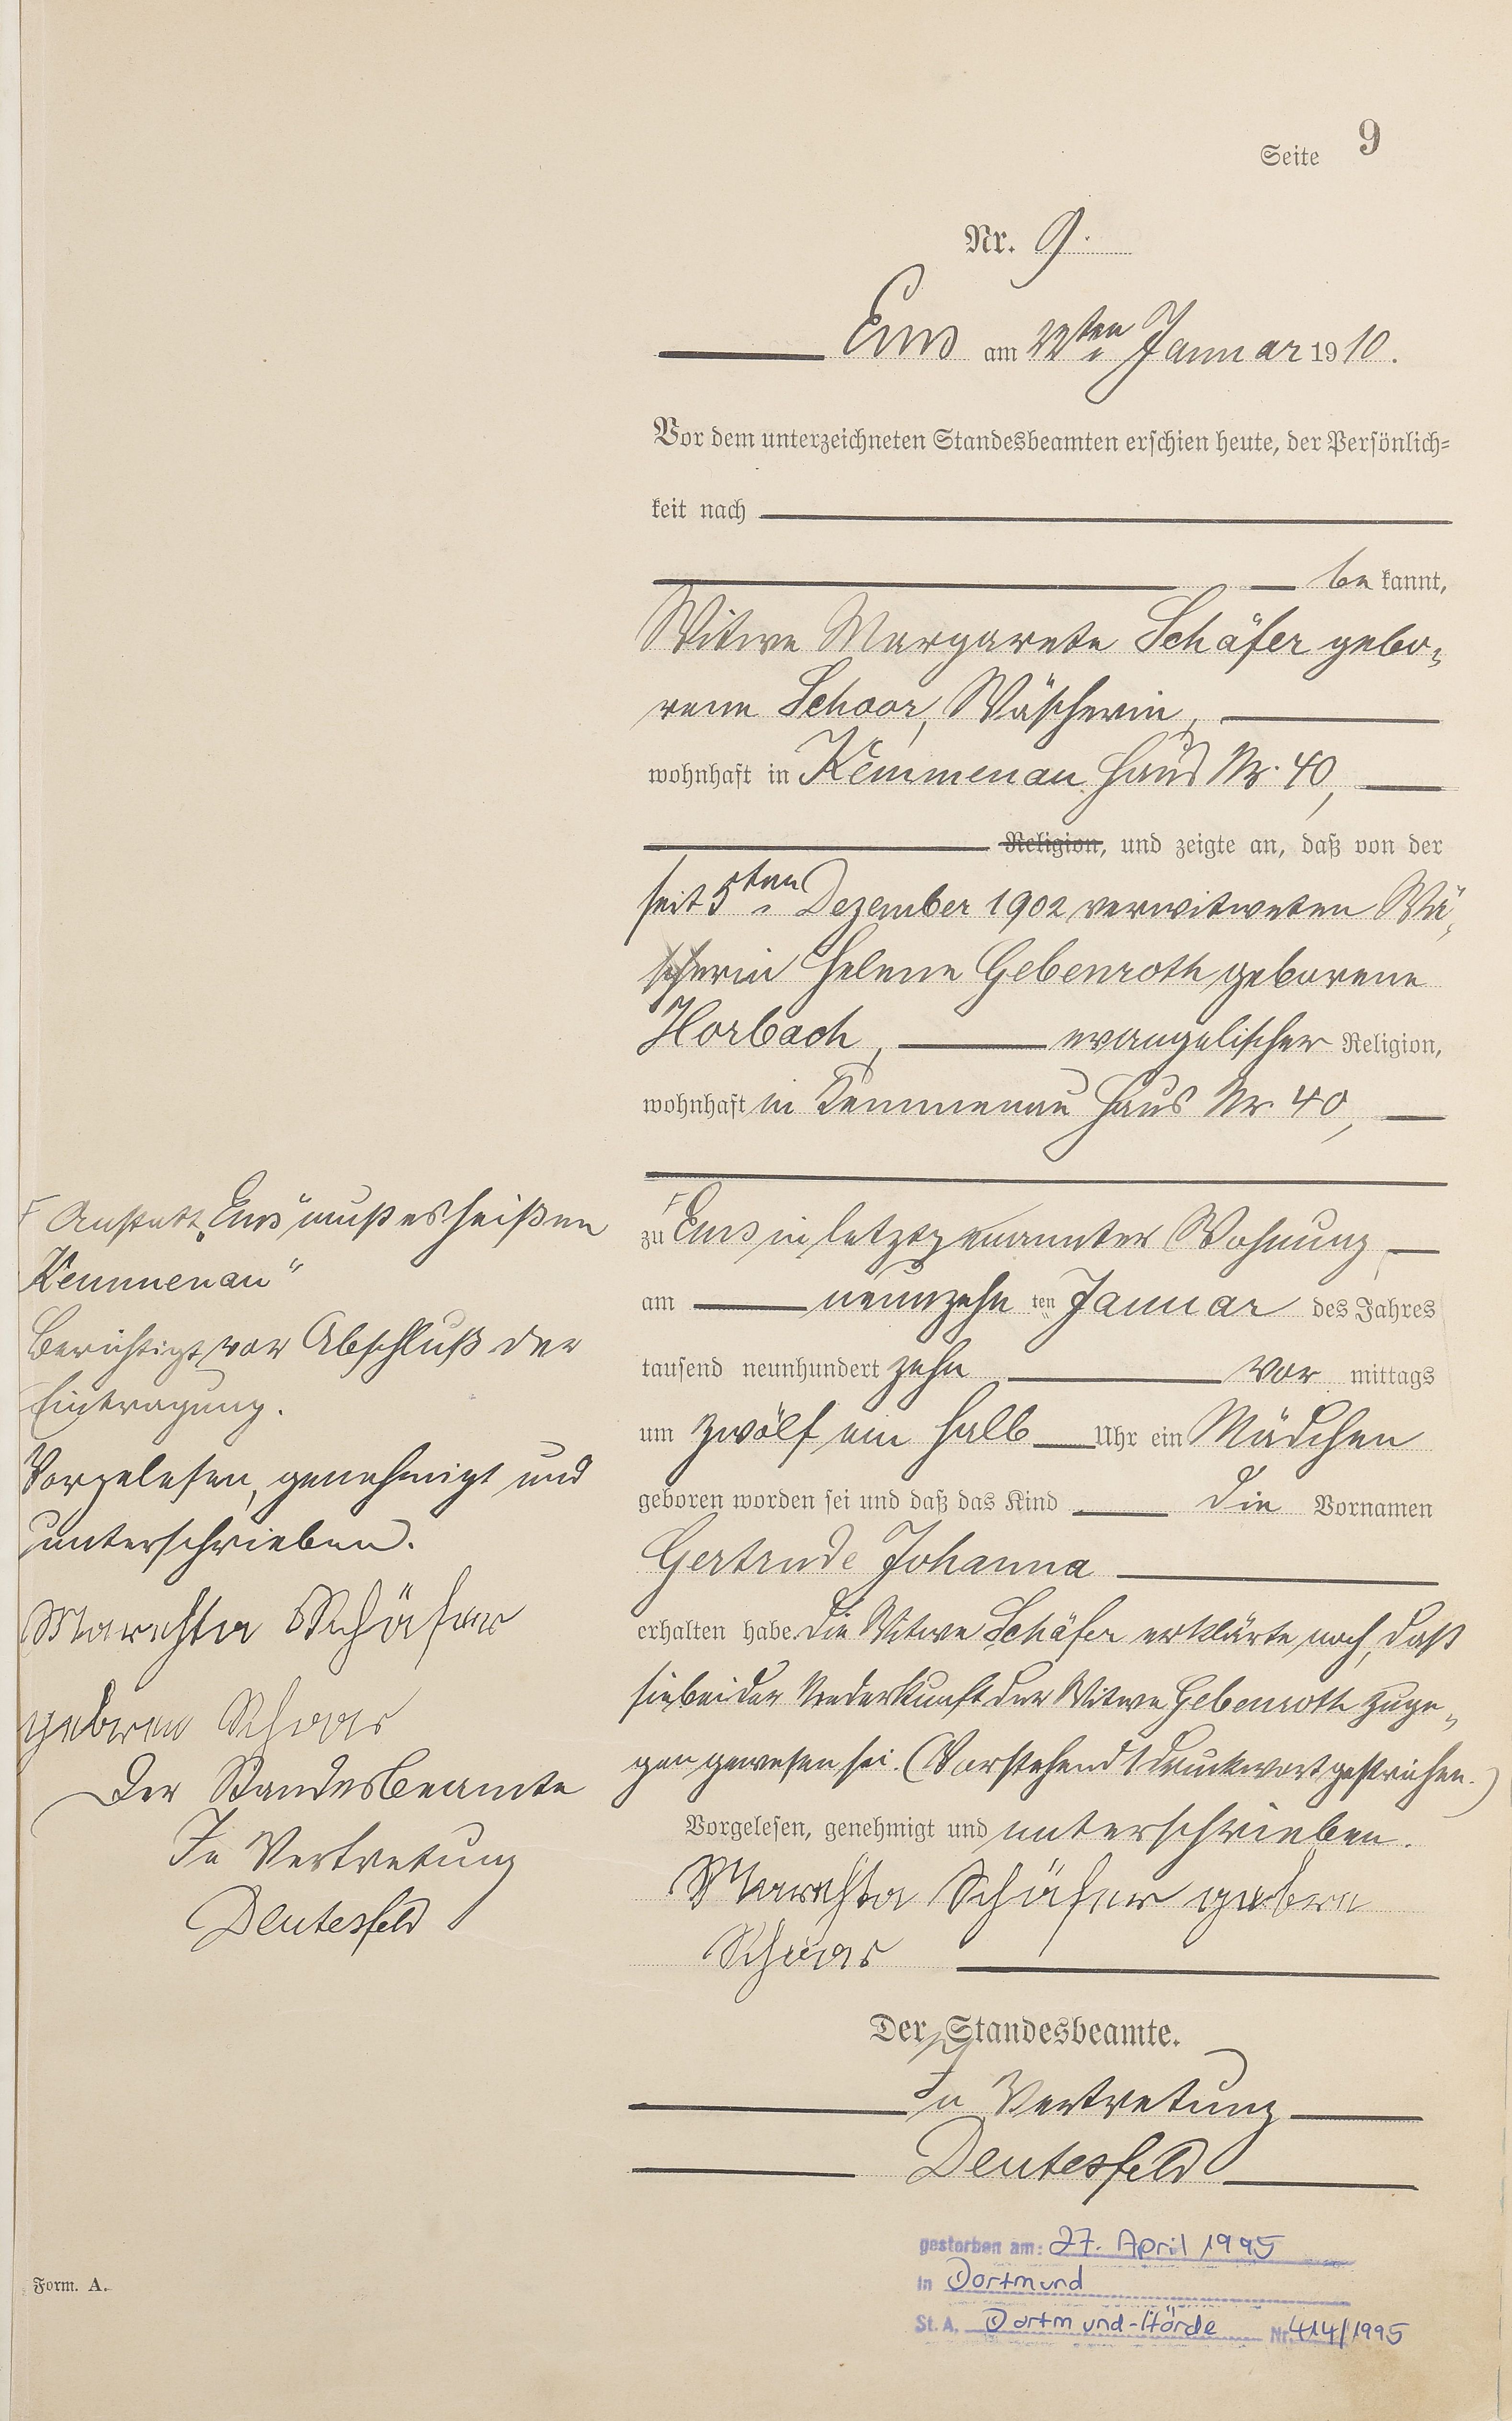 Seite 9
Nr. 9.
Ems am 22ten Januar 1910.
Vor dem unterzeichneten Standesbeamten erschien heute, der Persönlich-
keit nach
be kannt,
Witwe Margarete Schäfer gebo-
rene Schoor, Wäscherin,
wohnhaft in Kemmenau Haus Nr. 40,
Religion, und zeigte an, daß von der
seit 5ten Dezember 1902 verwitweten Wä-
scherin Helene Gebenroth geborene
Horbach, evangelischer Religion,
wohnhaft in Kemmenau Haus Nr. 40,
zu Ems in letztgenannter Wohnung
am neunzehn ten Januar des Jahres
tausend neunhundert zehn vor mittags
um zwölf ein halb Uhr ein Mädchen
geboren worden sei und daß das Kind die Vornamen
Gertrude Johanna
erhalten habe. Die Witwe Schäfer erklärte noch, daß
sie bei der Niederkunft der Witwe Gebenroth zuge-
gen gewesen sei. (Vorstehend 1 Druckwort gestrichen.)
Vorgelesen, genehmigt und unterschrieben.
Schäfer
Der Standesbeamte.
In Vertretung
Deutesfeld
gestorben am: 27. April 1995
in Dortmund
St. A. Dortmund-Hörde Nr. 414/1995
Anstatt „Ems" muß es heißen
Kemmenau"
Berichtigt vor Abschluß der
Eintragung.
Vorgelesen, genehmigt und
unterschrieben.
Schäfer
Der Standesbeamte
In Vertretung
Deutesfeld
Form. A.